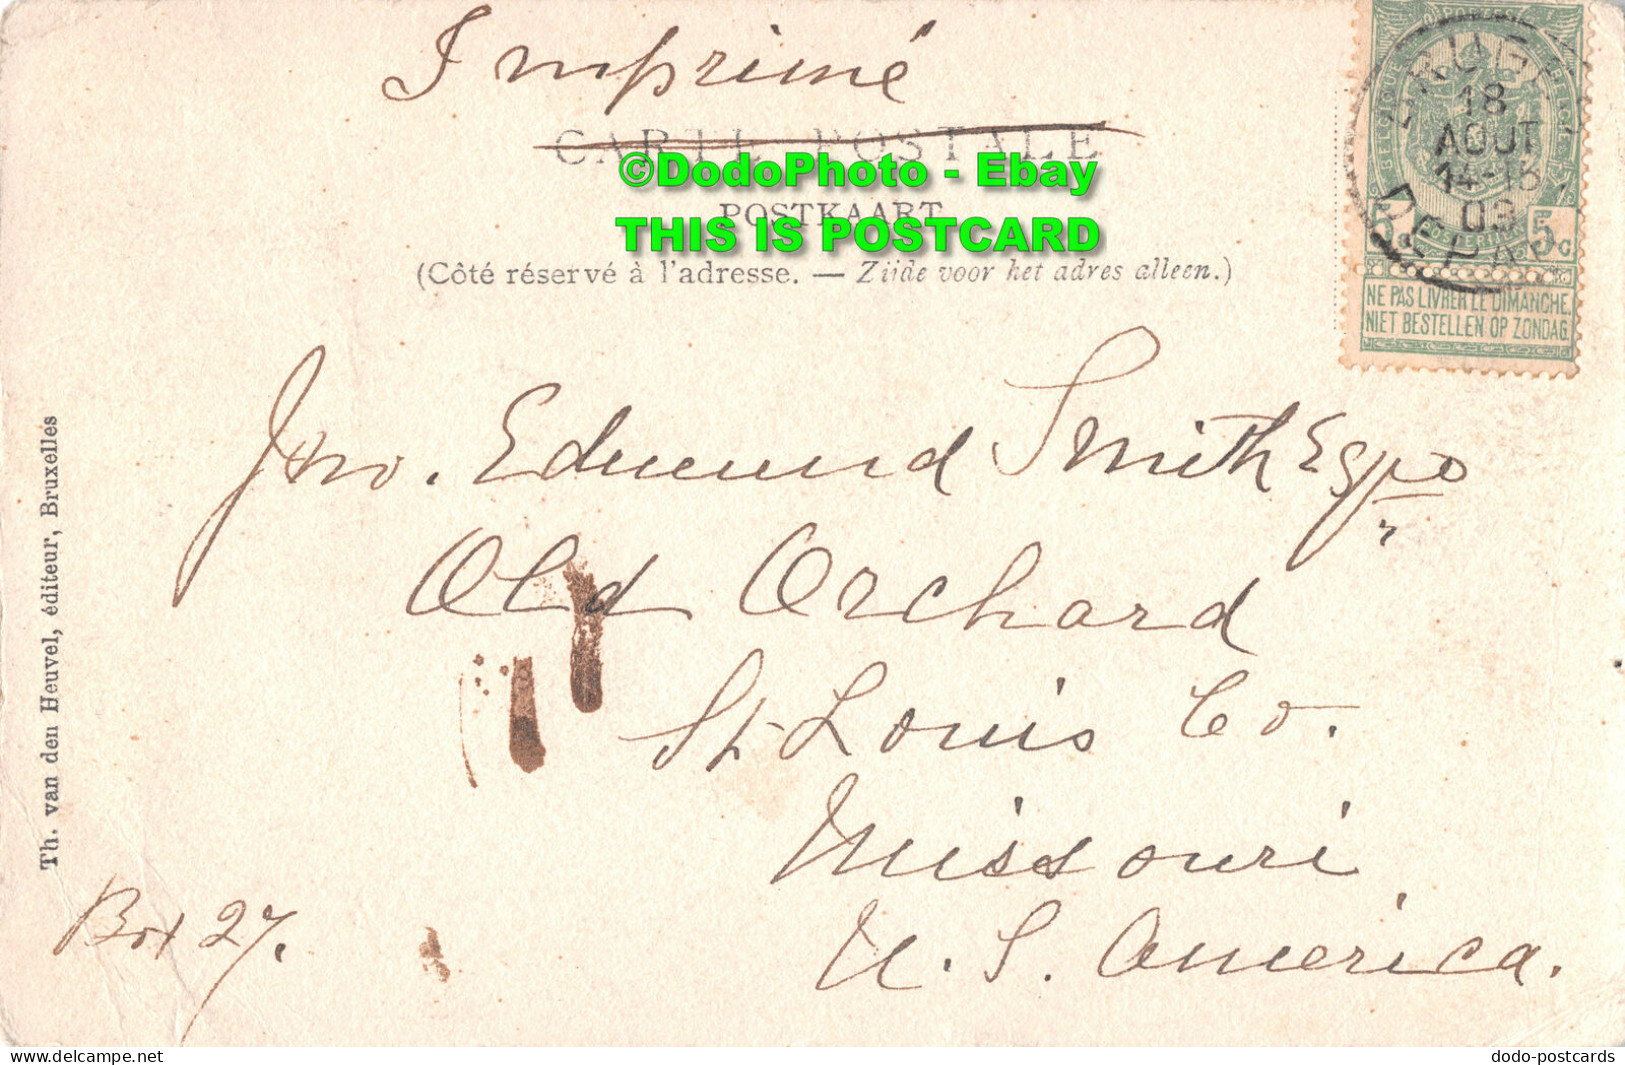 Imprimé
CARTE POSTALE
©DodoPhoto - Ebay
POSTKAART
THIS IS POSTCARD
(Côté réservé à l'adresse. — Zijde voor het adres alleen.)
18
AOUT
03
DEPART
5 5c
NE PAS LIVRER LE DIMANCHE.
NIET BESTELLEN OP ZONDAG.
Jno. Edmund Smith Esqro
Old Orchard
St Louis Co.
Missouri
U. S. America.
Box 27.
Th. van den Heuvel, éditeur, Bruxelles
delcampe.net
dodo-postcards